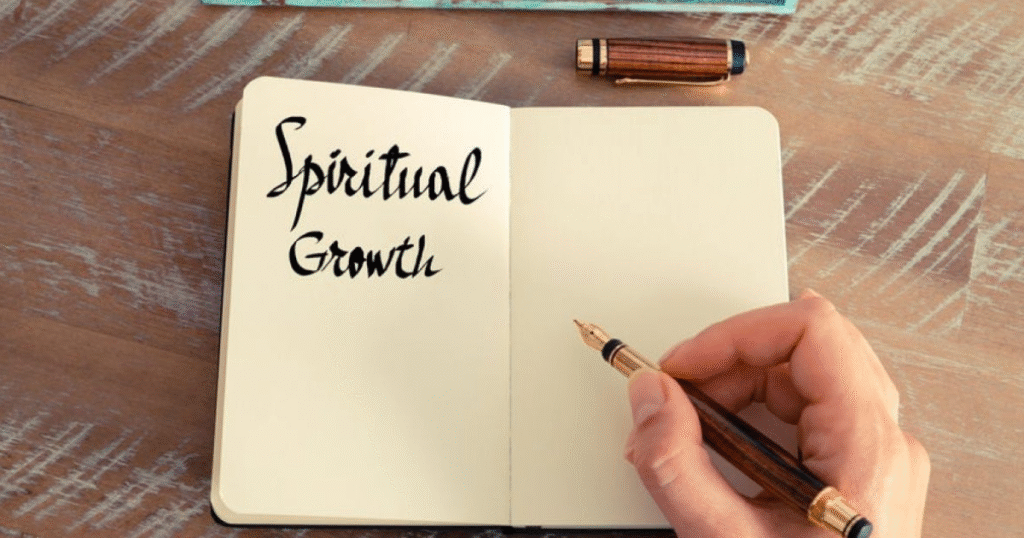 Spiritual
Growth